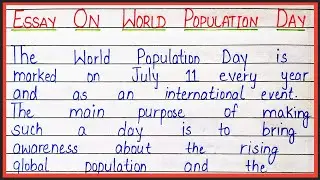 ESSAY ON WORLD POPULATION DAY
The World Population Day is
marked on July 11 every year
and as an international event.
The main purpose of making
such a day is to bring
awareness about the rising
global population and the